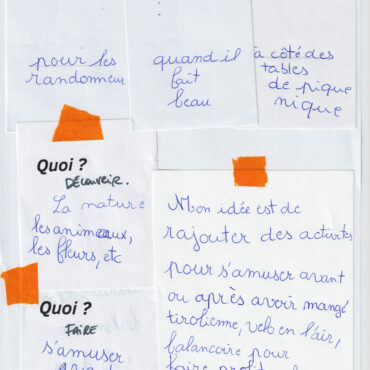 pour les
randonneurs
quand il
fait
beau
à côté des
tables
de pique
nique
Quoi ?
DÉCOUVRIR.
La nature
les animeaux,
les fleurs, etc
Quoi ?
FAIRE
s'amuser
Mon idée est de
rajouter des activités
pour s'amuser avant
ou après avoir mangé
tirolienne, velo en l'air,
balancoire pour
faire profiter